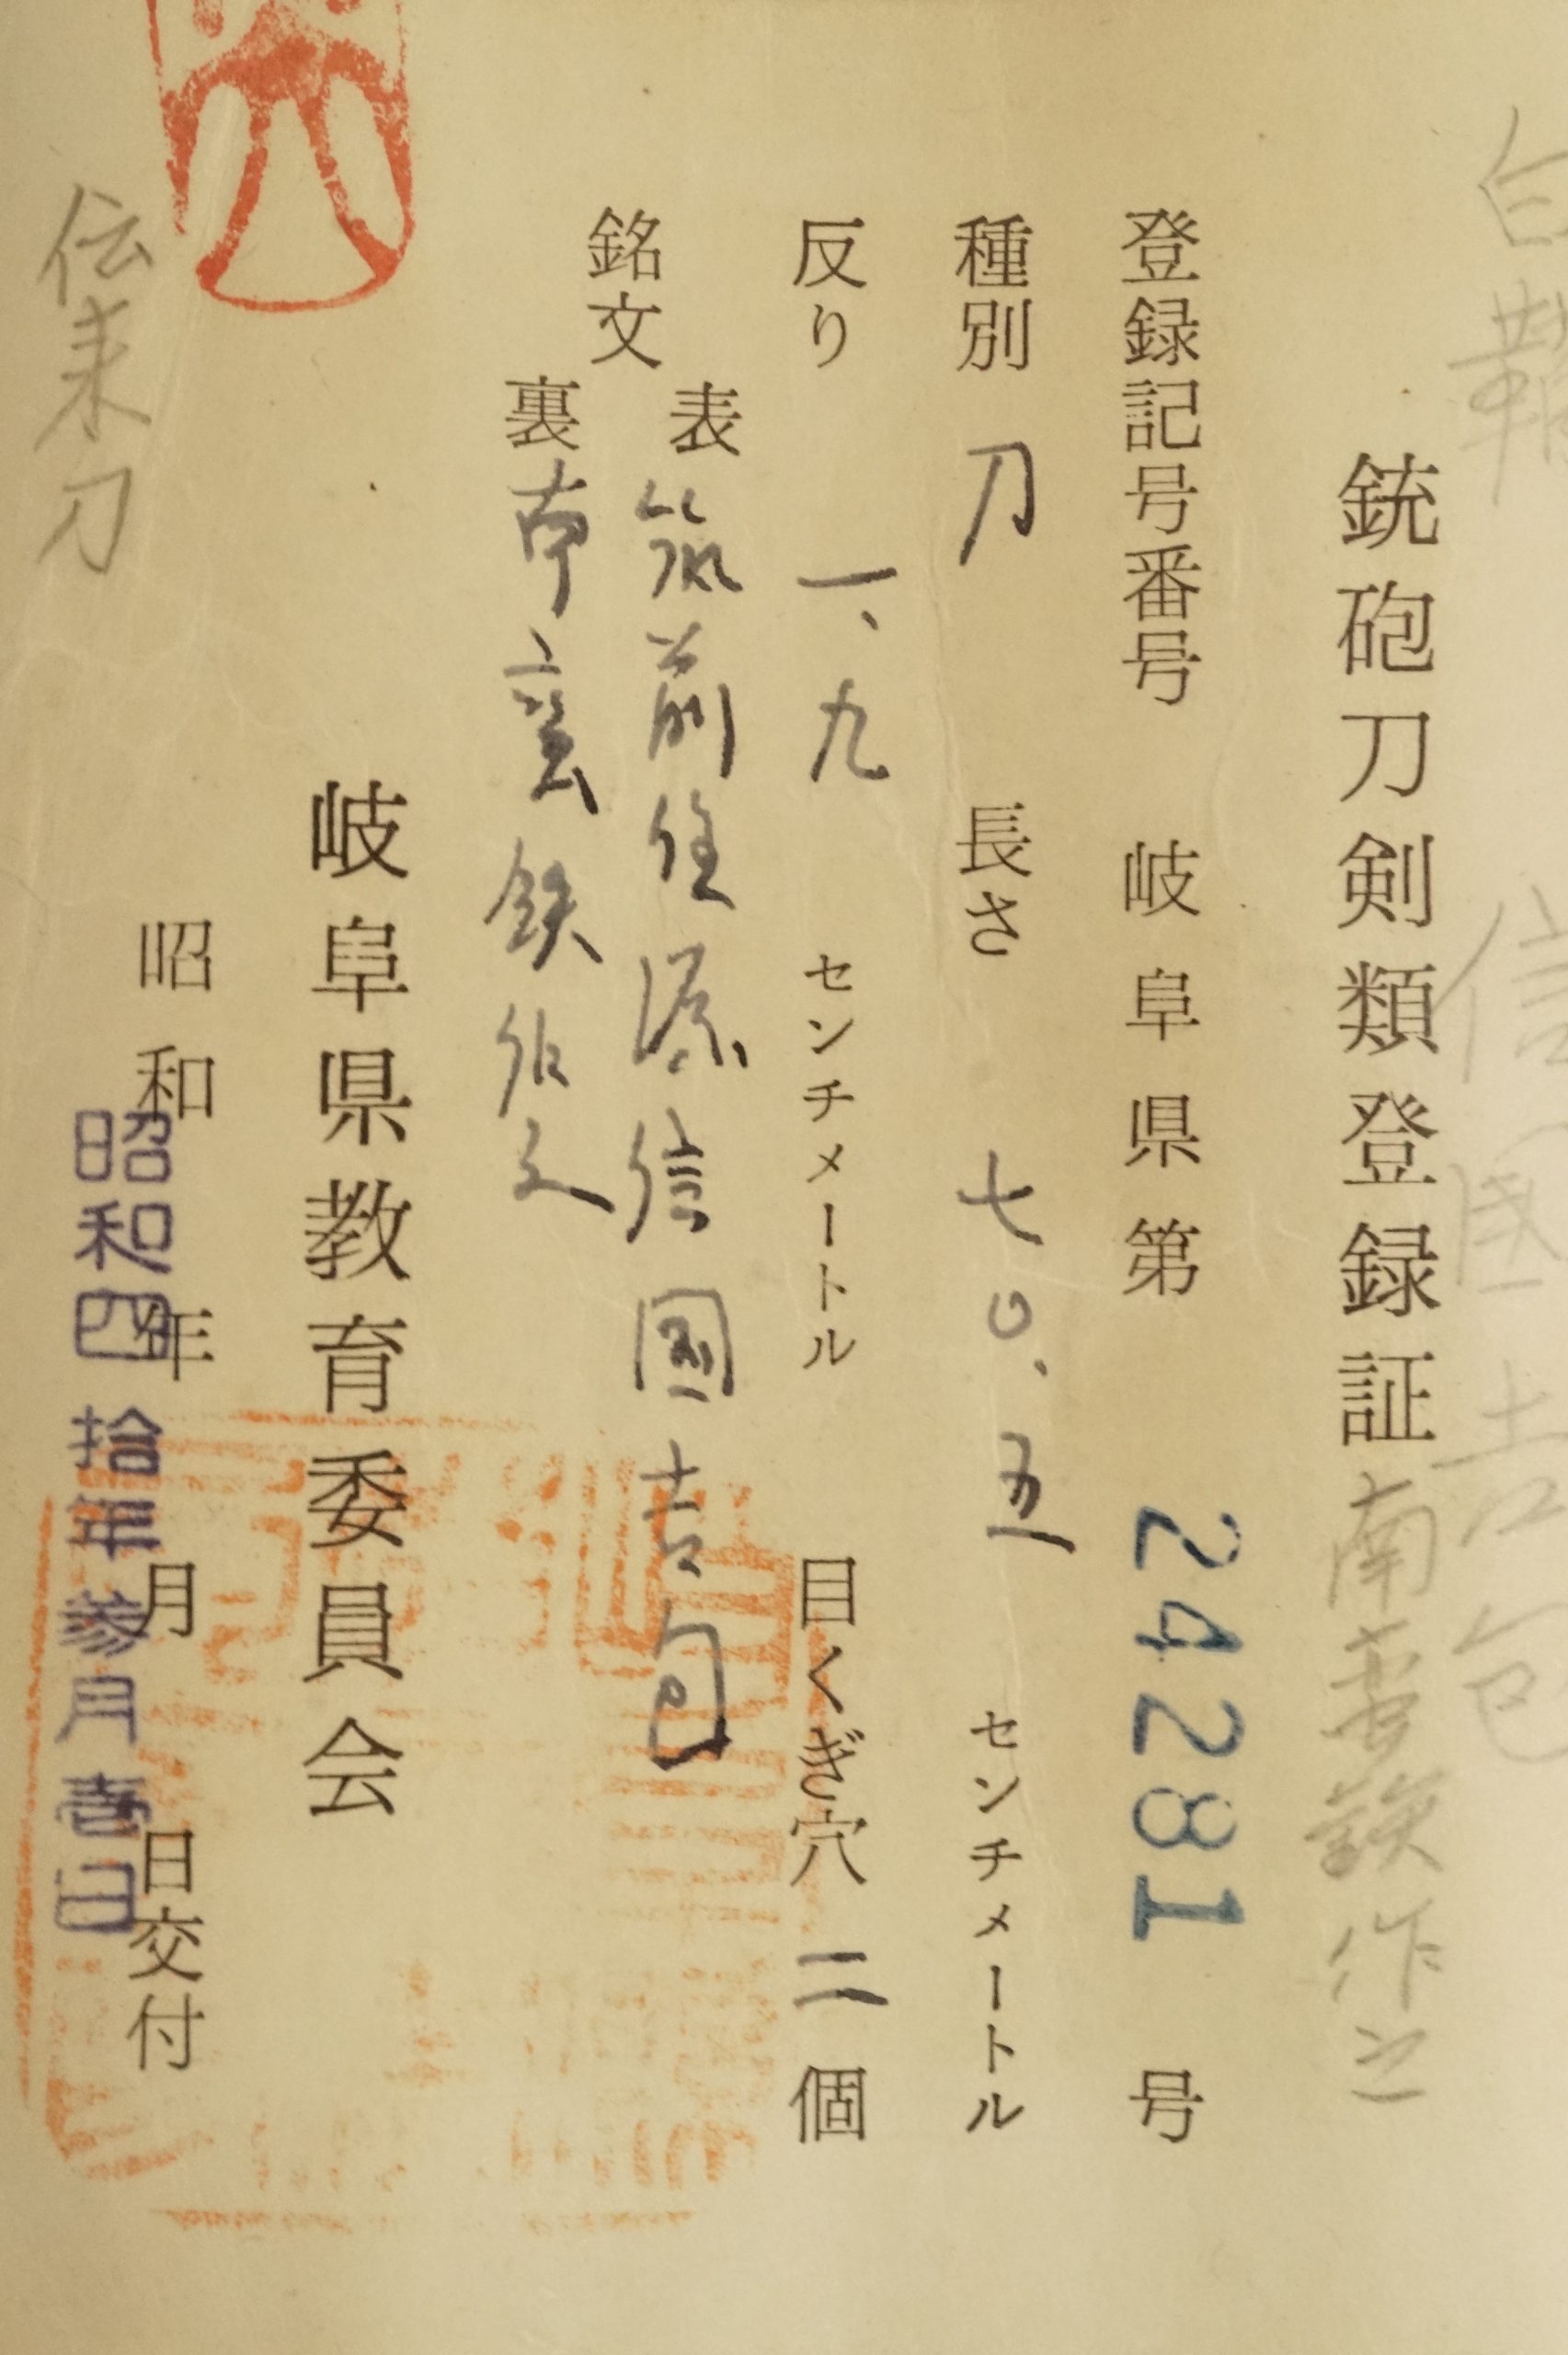 白鞘 信國吉包
銃砲刀剣類登録証 南蛮鉄作之
登録記号番号 岐阜県第 24281 号
種別 刀 長さ 七〇.五 センチメートル
反り 一、九 センチメートル 目くぎ穴 二 個
銘文
表 筑前住源信國吉包
裏 南蛮鉄作之
岐阜県教育委員会
昭和 年 月 日交付
昭和四拾年参月壹日
伝来刀